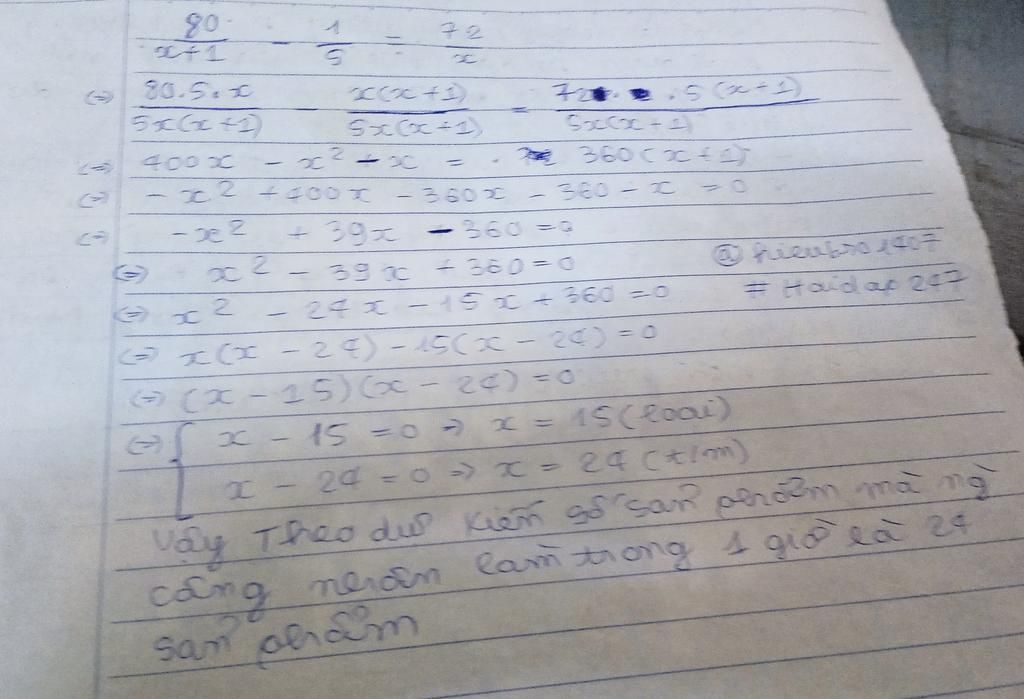 80/x+1 - 1/5 = 72/x
(=) 80.5.x/5x(x+1) - x(x+1)/5x(x+1) = 72.5(x+1)/5x(x+1)
(=) 400x - x² - x = 360(x+1)
(=) - x² + 400x - 360x - 360 - x = 0
(=) -x² + 39x - 360 = 0
(=) x² - 39x + 360 = 0 @hieubro1407
(=) x² - 24x - 15x + 360 = 0 # Hoidap 247
(=) x(x - 24) - 15(x - 24) = 0
(=) (x - 15)(x - 24) = 0
(=) [ x - 15 = 0 => x = 15 (loại)
x - 24 = 0 => x = 24 (t/m)
Vậy Theo dự kiến số sản phẩm mà ng
công nhân làm trong 1 giờ là 24
sản phẩm